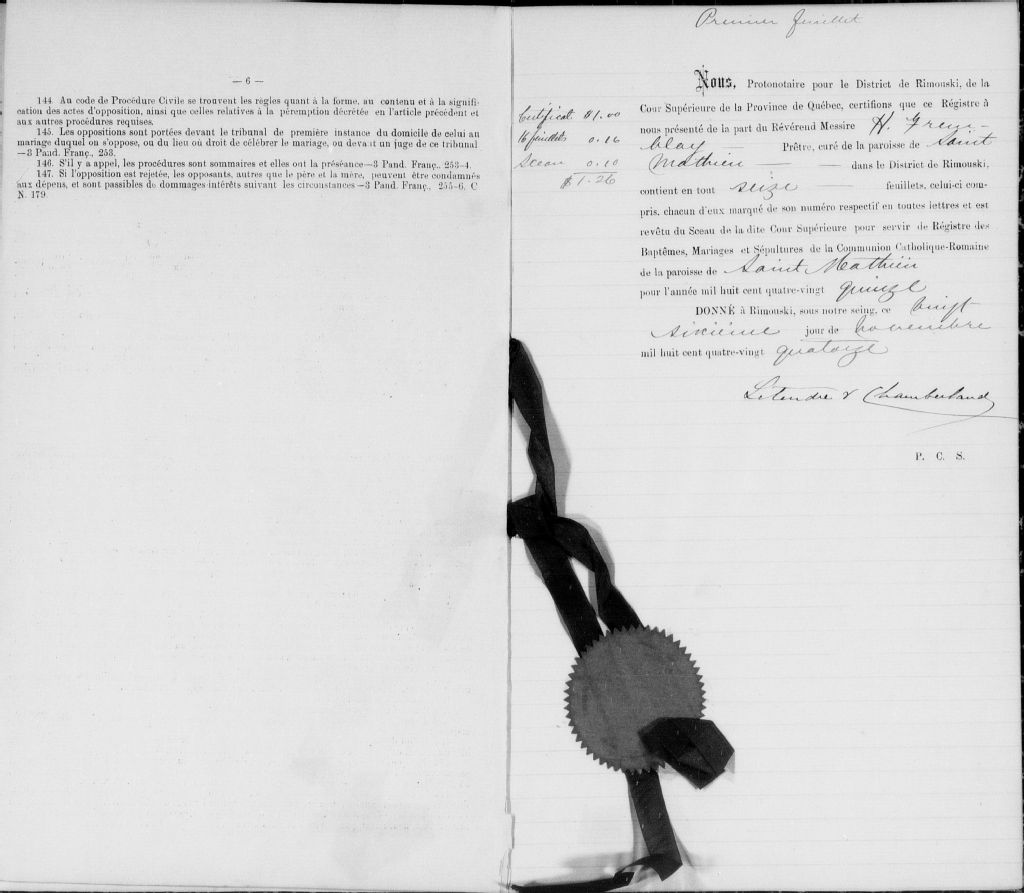 — 6 —
144. Au code de Procédure Civile se trouvent les règles quant à la forme, au contenu et à la signifi-
cation des actes d'opposition, ainsi que celles relatives à la péremption décrétée en l'article précédent et
aux autres procédures requises.
145. Les oppositions sont portées devant le tribunal de première instance du domicile de celui au
mariage duquel on s'oppose, ou du lieu où droit de célébrer le mariage, ou devant un juge de ce tribunal
—3 Pand. Franç., 253.
146. S'il y a appel, les procédures sont sommaires et elles ont la préséance—3 Pand. Franç., 253-4.
147. Si l'opposition est rejetée, les opposants, autres que le père et la mère, peuvent être condamnés
aux dépens, et sont passibles de dommages-intérêts suivant les circonstances—3 Pand. Franç., 255-6, C
N. 179.
Premier feuillet
Certificat $1.00
16 feuillets 0.16
Sceau 0.10
$1.26
Nous, Protonotaire pour le District de Rimouski, de la
Cour Supérieure de la Province de Québec, certifions que ce Régistre à
nous présenté de la part du Révérend Messire H.
Prêtre, curé de la paroisse de Saint
Mathieu dans le District de Rimouski,
contient en tout seize feuillets, celui-ci com-
pris, chacun d'eux marqué de son numéro respectif en toutes lettres et est
revêtu du Sceau de la dite Cour Supérieure pour servir de Régistre des
Baptêmes, Mariages et Sépultures de la Communion Catholique-Romaine
de la paroisse de Saint Mathieu
pour l'année mil huit cent quatre-vingt quinze
DONNÉ à Rimouski, sous notre seing, ce vingt
sixième jour de novembre
mil huit cent quatre-vingt quatorze
Letendre & Chamberland
P. C. S.